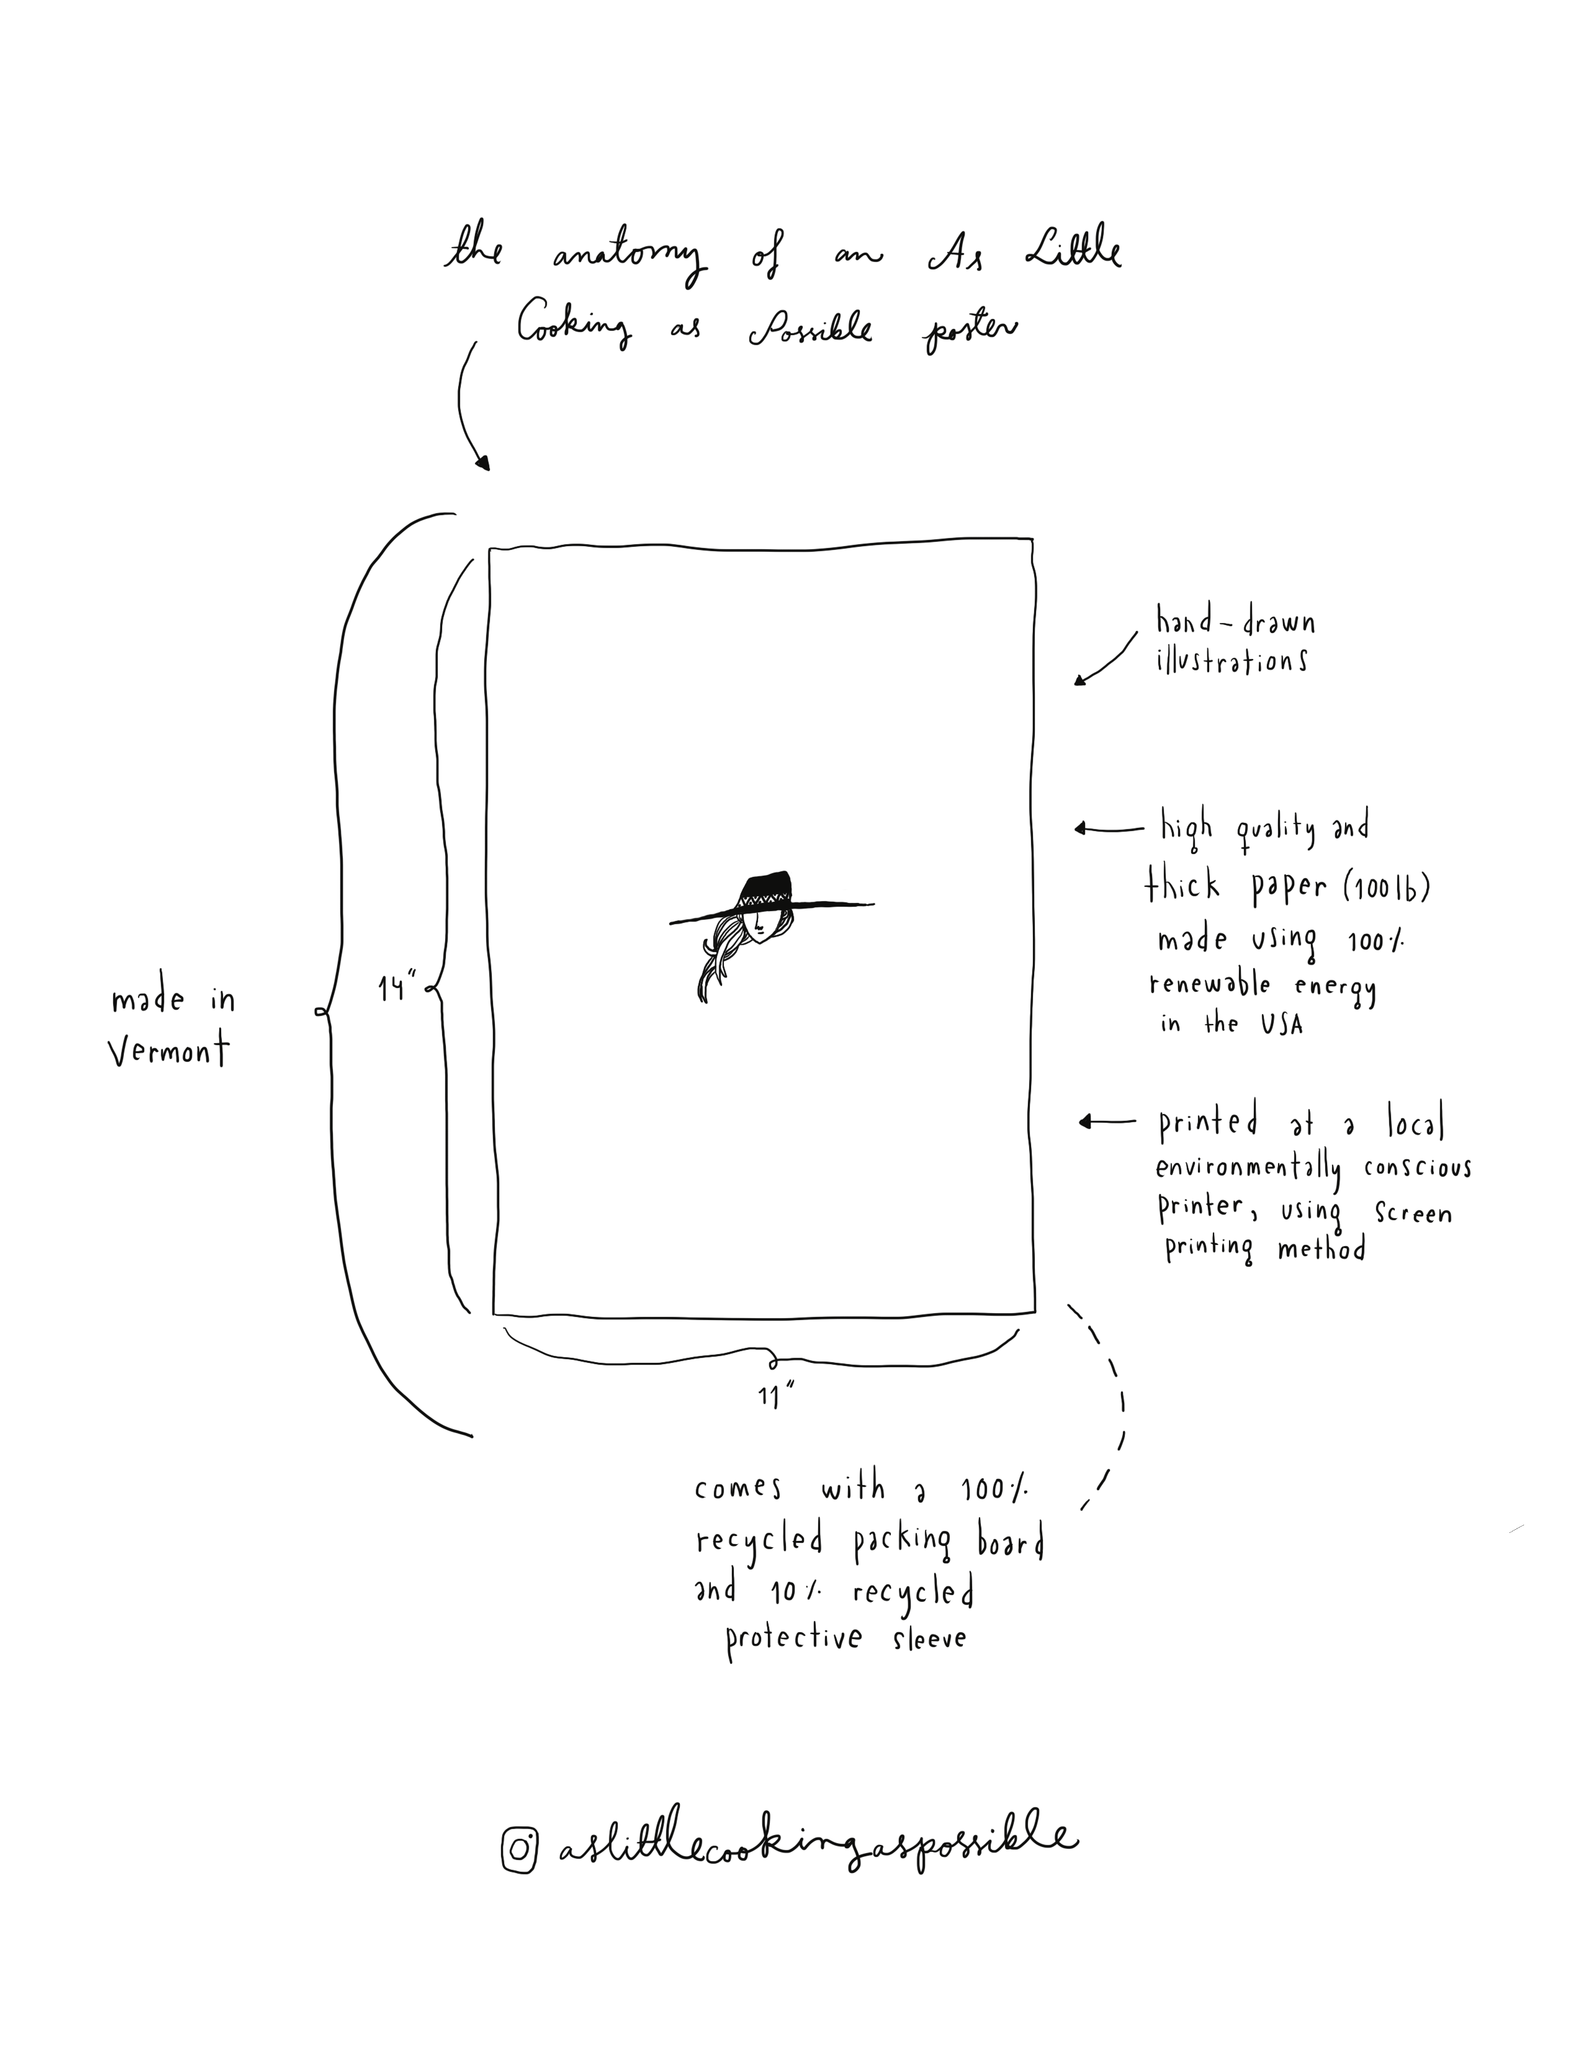 the anatomy of an As Little
Cooking as Possible poster
hand-drawn
illustrations
high quality and
thick paper (100lb)
made using 100%
renewable energy
in the USA
made in
Vermont
14"
printed at a local
environmentally conscious
printer, using screen
printing method
11"
comes with a 100%
recycled packing board
and 10% recycled
protective sleeve
aslittlecookingaspossible